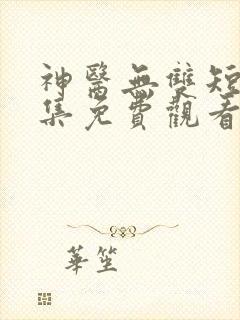 神醫無雙短
集免費觀看
華笙